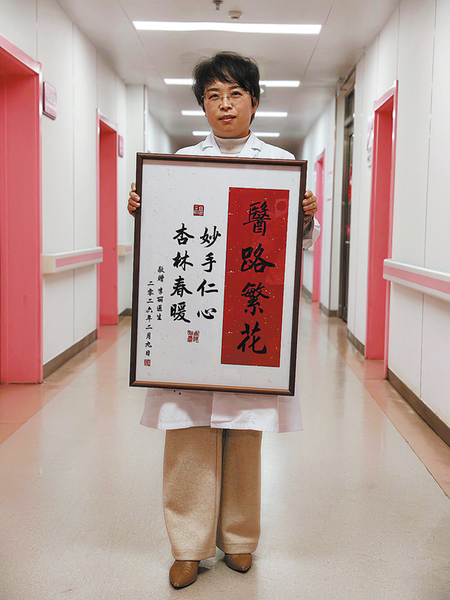 醫路繁花
妙手仁心
杏林春暖
敬贈 李丽医生
二零二六年二月九日